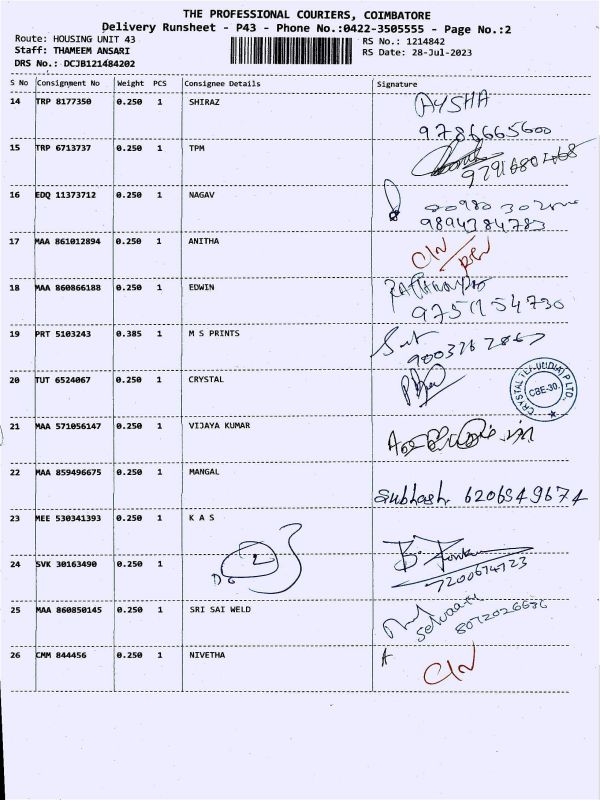 THE PROFESSIONAL COURIERS, COIMBATORE
Delivery Runsheet - P43 - Phone No.:0422-3505555 - Page No.:2
Route: HOUSING UNIT 43
RS No.: 1214842
Staff: THAMEEM ANSARI
RS Date: 28-Jul-2023
DRS No.: DCJB121484202
S No Consignment No Weight PCS Consignee Details Signature
14 TRP 8177350 0.250 1 SHIRAZ AYSHA
9786665600
15 TRP 6713737 0.250 1 TPM
9791680468
16 EDQ 11373712 0.250 1 NAGAV
9894384783
17 MAA 861012894 0.250 1 ANITHA
18 MAA 860866188 0.250 1 EDWIN
9751154730
19 PRT 5103243 0.385 1 M S PRINTS
20 TUT 6524067 0.250 1 CRYSTAL
CBE-30.
21 MAA 571056147 0.250 1 VIJAYA KUMAR
22 MAA 859496675 0.250 1 MANGAL
Subhash 6206549674
23 MEE 530341393 0.250 1 K A S
24 SVK 30163490 0.250 1
7200674723
25 MAA 860850145 0.250 1 SRI SAI WELD
26 CMM 844456 0.250 1 NIVETHA